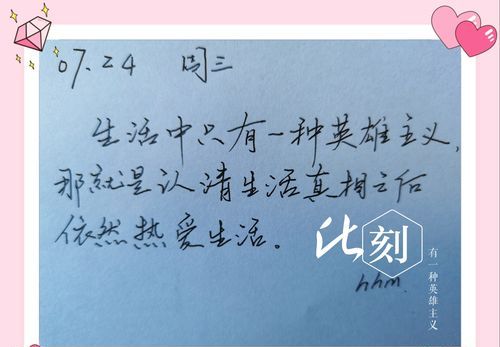 07.24 周三
生活中只有一种英雄主义,
那就是认清生活真相之后
依然热爱生活。
此刻
有一种英雄主义
hhm.